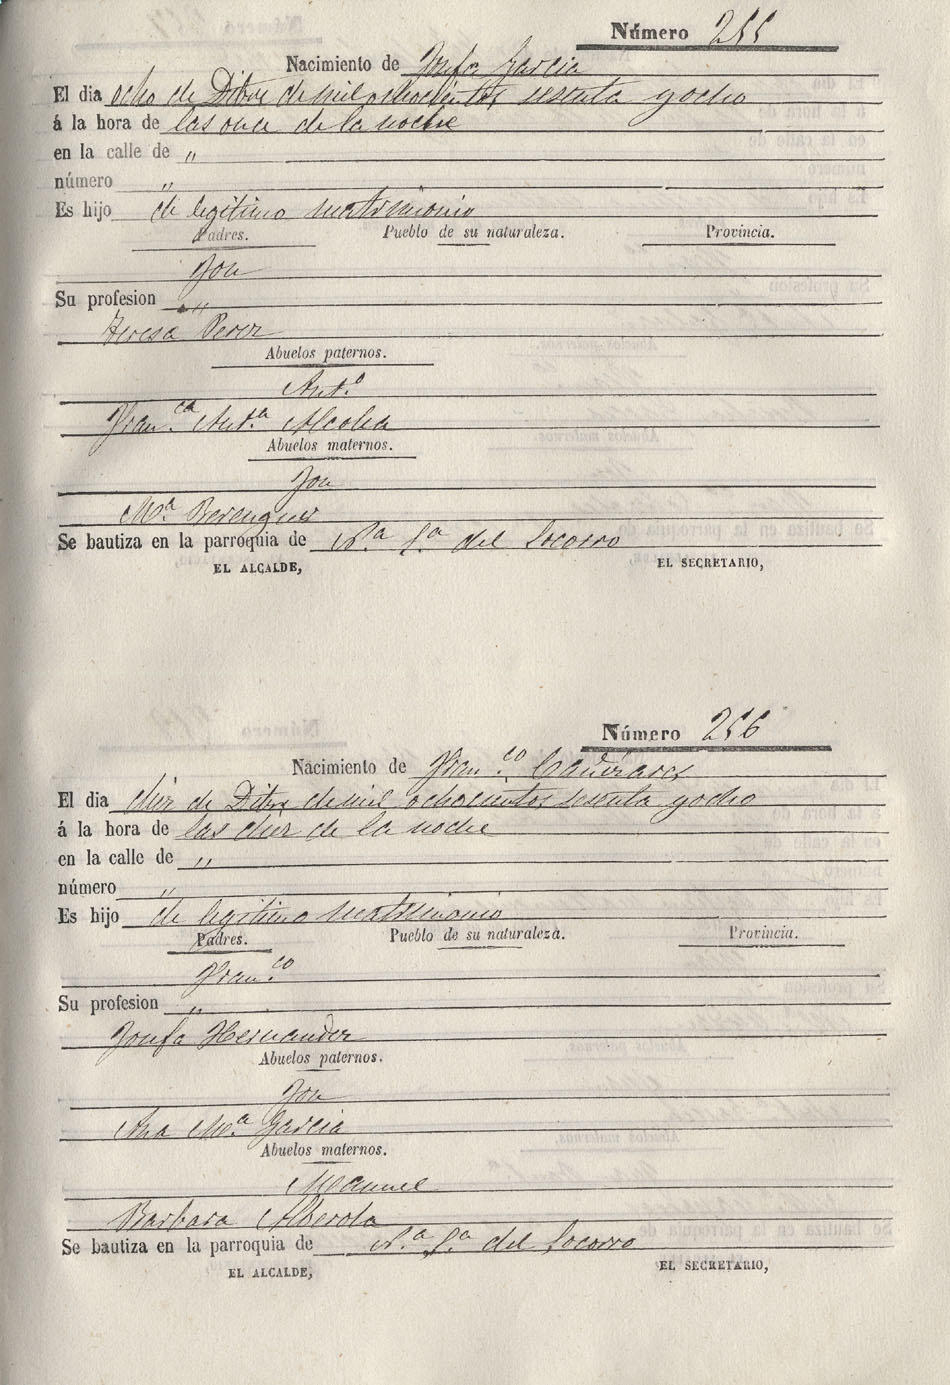 Número 255
Nacimiento de Josefa Garcia
El dia ocho de Dbre de mil ochocientos sesenta y ocho
á la hora de las once de la noche
en la calle de "
número "
Es hijo de legitimo matrimonio
Padres. Pueblo de su naturaleza. Provincia.
José
Su profesion "
Teresa Perez
Abuelos paternos.
Ant.º
Fran.ca Ant.a Alcolea
Abuelos maternos.
José
M.a Berenguer
Se bautiza en la parroquia de N.a S.a del Socorro
EL ALCALDE, EL SECRETARIO,
Número 256
Nacimiento de Fran.co Cañizares
El dia diez de Dbre de mil ochocientos sesenta y ocho
á la hora de las diez de la noche
en la calle de "
número "
Es hijo de legitimo matrimonio
Padres. Pueblo de su naturaleza. Provincia.
Fran.co
Su profesion "
Josefa Hernandez
Abuelos paternos.
José
Ana M.a Garcia
Abuelos maternos.
Manuel
Barbara Alberola
Se bautiza en la parroquia de N.a S.a del Socorro
EL ALCALDE, EL SECRETARIO,